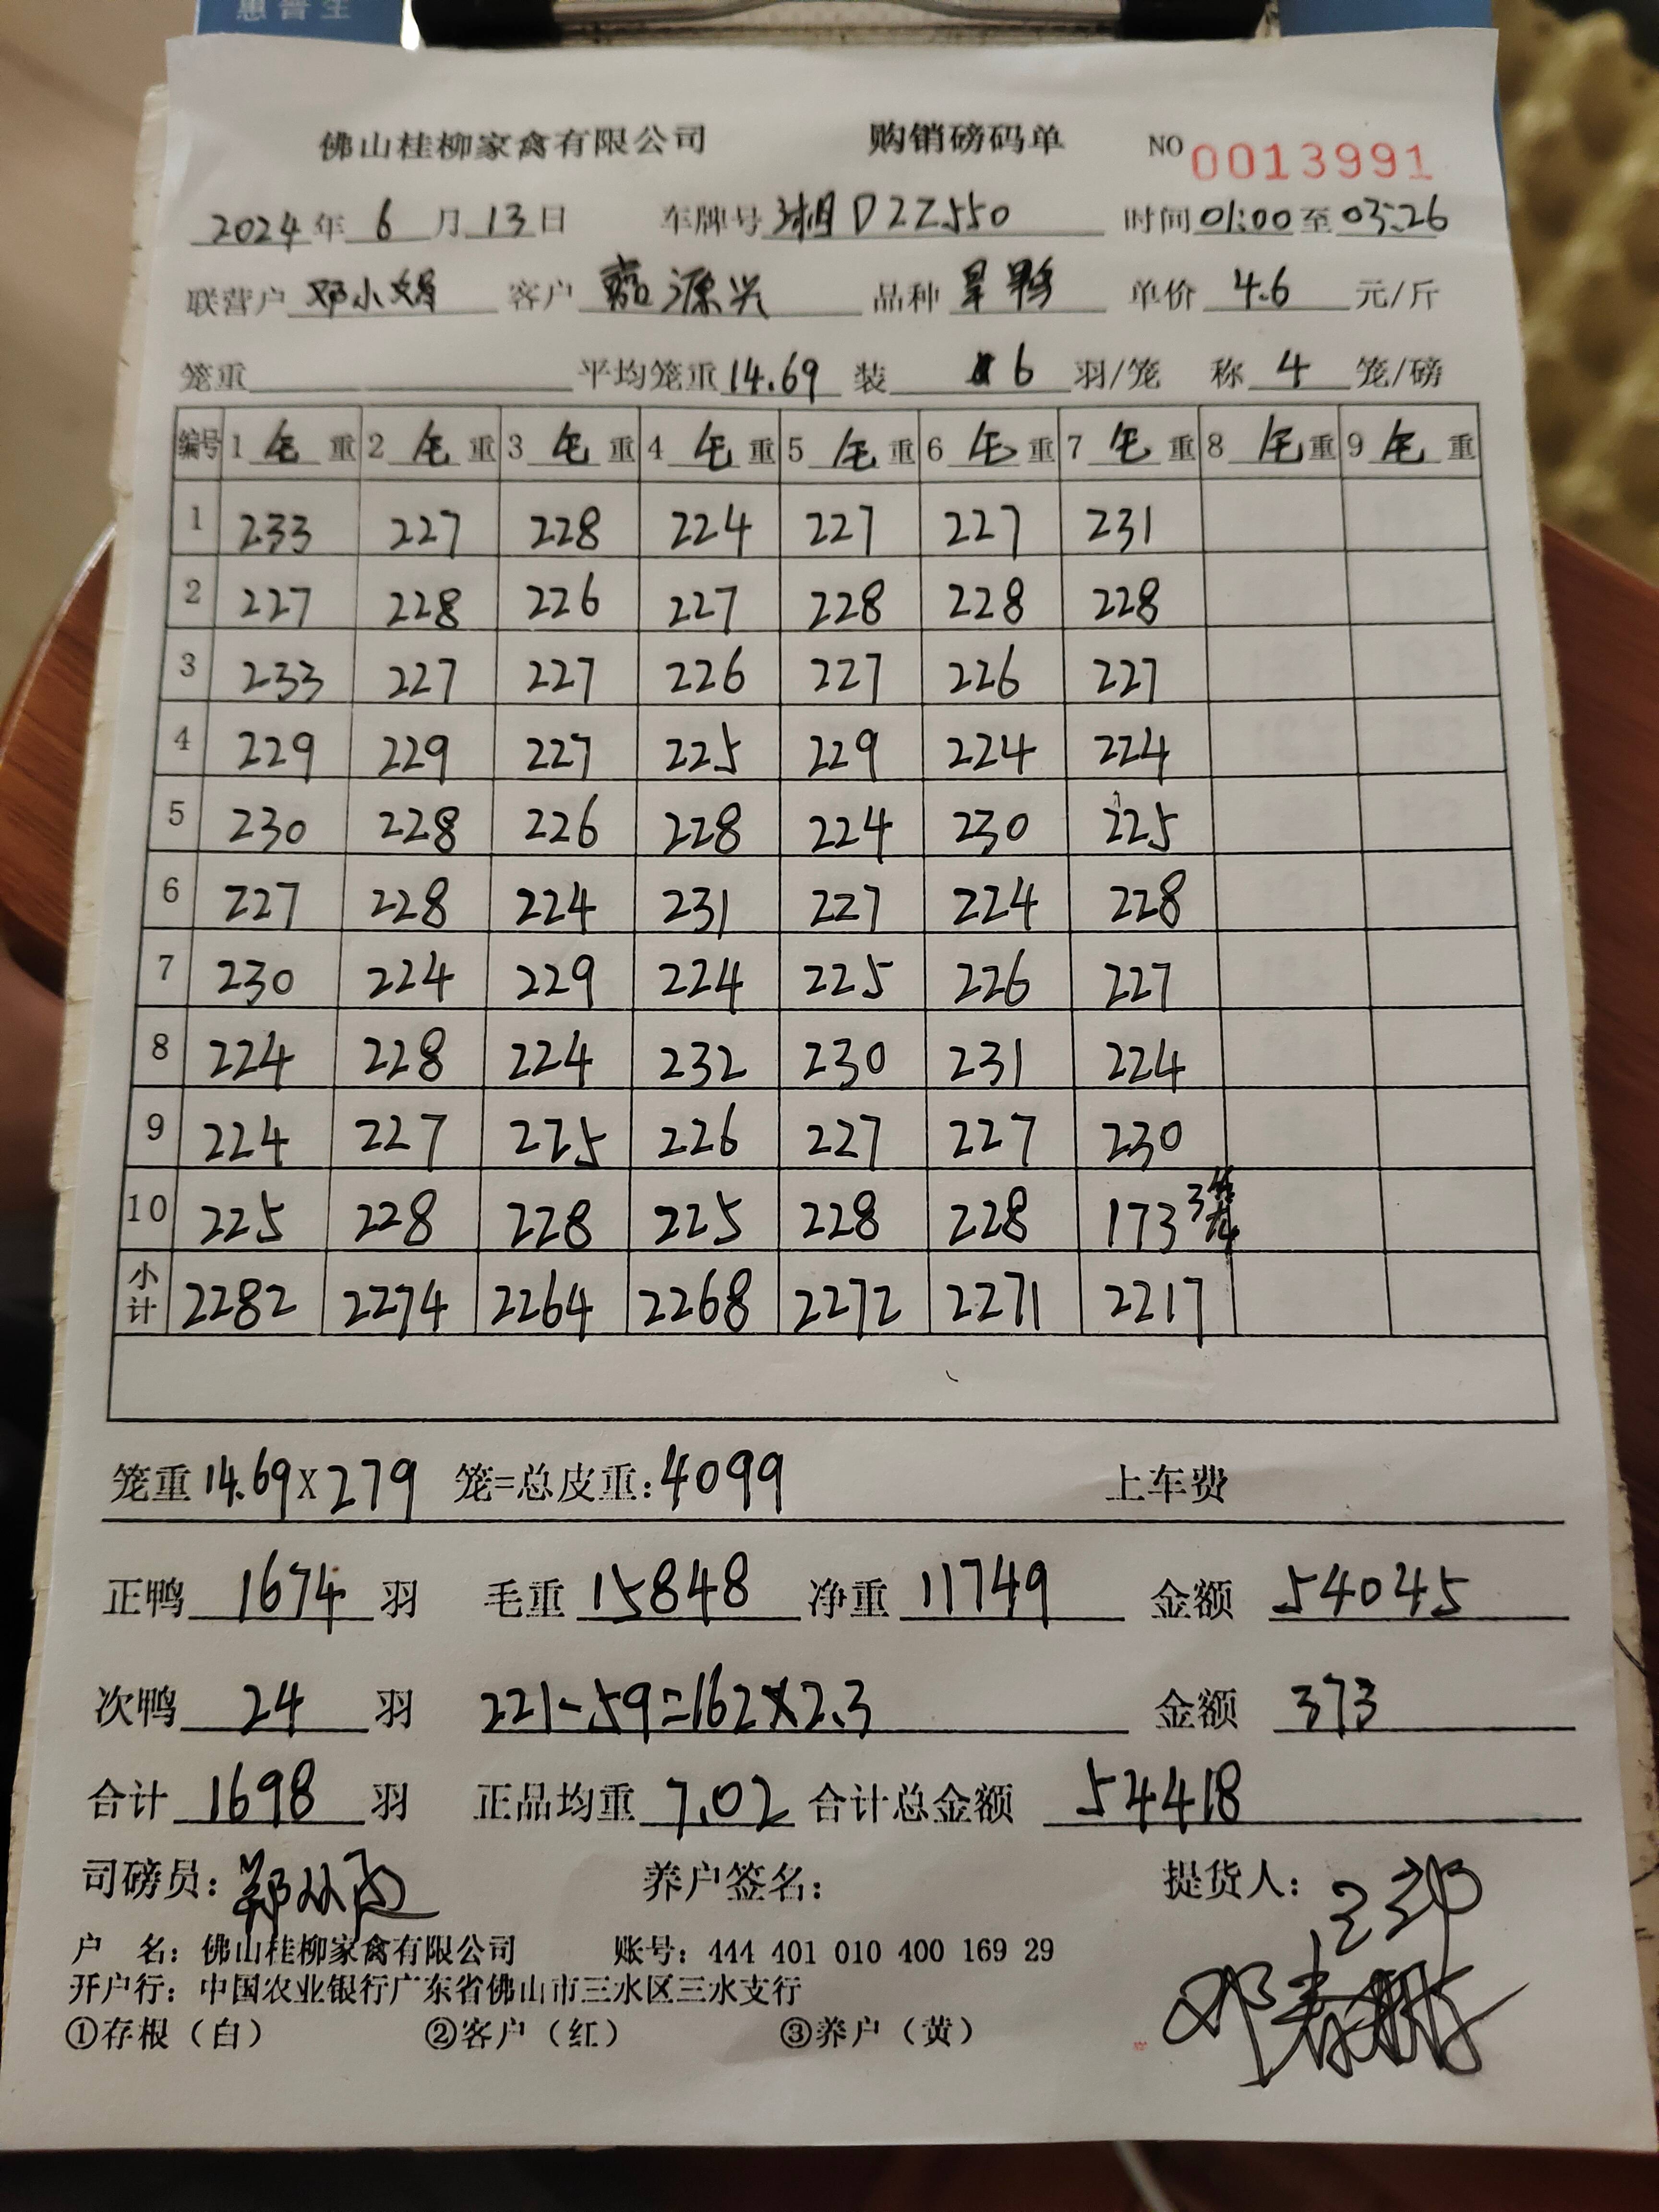 惠普生
佛山桂柳家禽有限公司 购销磅码单 NO 0013991
2024年 6 月 13 日 车牌号 湘D2Z550 时间 01:00 至 03:26
联营户 邓小娟 客户 嘉源兴 品种 旱鸭 单价 4.6 元/斤
笼重 平均笼重 14.69 装 6 羽/笼 称 4 笼/磅
编号 1 毛 重 2 毛 重 3 毛 重 4 毛 重 5 毛 重 6 毛 重 7 毛 重 8 毛 重 9 毛 重
1 233 227 228 224 227 227 231
2 227 228 226 227 228 228 228
3 233 227 227 226 227 226 227
4 229 229 227 225 229 224 224
5 230 228 226 228 224 230 225
6 227 228 224 231 227 224 228
7 230 224 229 224 225 226 227
8 224 228 224 232 230 231 224
9 224 227 225 226 227 227 230
10 225 228 228 225 228 228 173 3笼
小计 2282 2274 2264 2268 2272 2271 2217
笼重 14.69X279 笼=总皮重:4099 上车费
正鸭 1674 羽 毛重 15848 净重 11749 金额 54045
次鸭 24 羽 221-59=162X2.3 金额 373
合计 1698 羽 正品均重 7.02 合计总金额 54418
司磅员: 养户签名: 提货人:
户 名: 佛山桂柳家禽有限公司 账号: 444 401 010 400 169 29
开户行: 中国农业银行广东省佛山市三水区三水支行
①存根（白） ②客户（红） ③养户（黄）